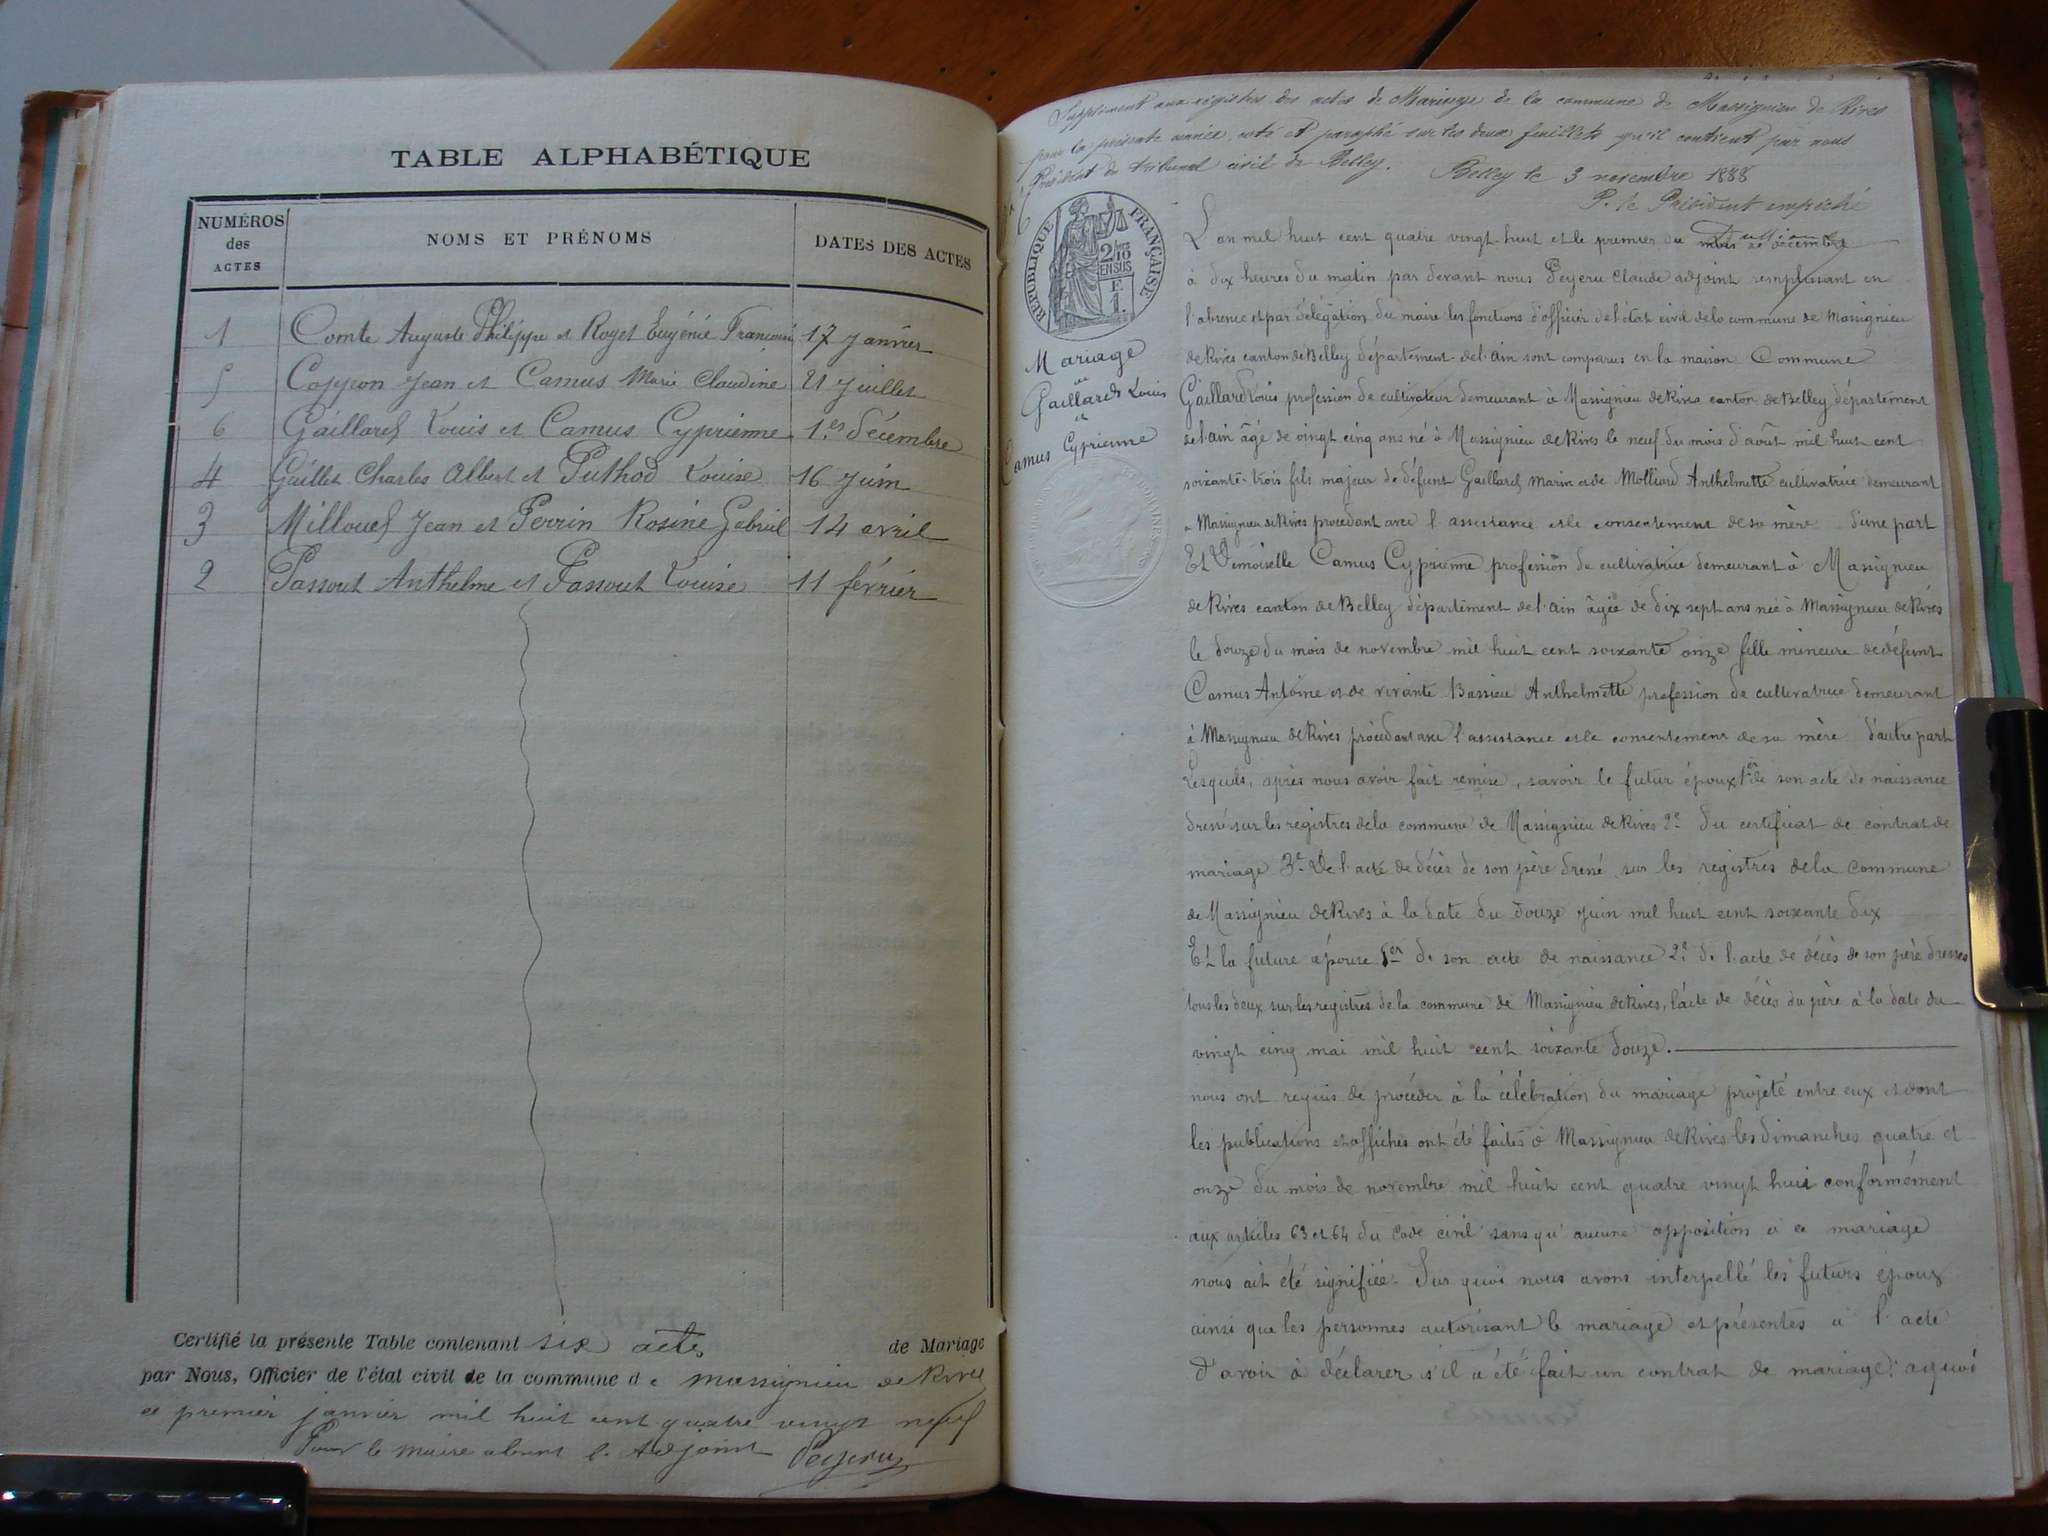 TABLE ALPHABÉTIQUE
NUMÉROS des ACTES
NOMS ET PRÉNOMS
DATES DES ACTES
1 Comte Auguste Philippe et Royet Eugénie 17 Janvier
5 Jean et Camus Marie Claudine 21 Juillet
6 Gaillard Louis et Camus Cyprienne 1er décembre
4 Gaillet Charles Albert et Puthod Louise 16 Juin
3 Jean et Perrin Rosine Gabriel 14 avril
2 Passout Anthelme et Passout Louise 11 février
Certifié la présente Table contenant six actes de Mariage
par Nous, Officier de l'état civil de la commune de Massignieu de Rives
ce premier janvier mil huit cent quatre vingt neuf
Pour le maire absent l'Adjoint Peyeru
Supplément aux régistres des actes de Mariage de la commune de Massignieu de Rives
pour la présente année, coté et paraphé sur les deux feuillets qu'il contient par nous
Président du tribunal civil de Belley. Belley le 3 novembre 1888
P. le Président empêché
RÉPUBLIQUE FRANÇAISE
2/10 EN SUS
F. 1.
Mariage
Gaillard Louis
et
Camus Cyprienne
L'an mil huit cent quatre vingt-huit et le premier du mois de décembre
à dix heures du matin par devant nous Peyeru Claude adjoint remplissant en
l'absence et par délégation du maire les fonctions d'officier de l'état civil de la commune de Massignieu
de Rives canton de Belley département de l'ain sont comparus en la maison Commune
Gaillard Louis profession de cultivateur demeurant à Massignieu de Rives canton de Belley département
de l'ain âgé de vingt cinq ans né à Massignieu de Rives le neuf du mois d'août mil huit cent
soixante-trois fils majeur de défunt Gaillard Marin et de Anthelmette cultivatrice demeurant
à Massignieu de Rives procédant avec l'assistance et le consentement de sa mère d'une part
Et Demoiselle Camus Cyprienne profession de cultivatrice demeurant à Massignieu
de Rives canton de Belley département de l'ain âgée de dix sept ans née à Massignieu de Rives
le douze du mois de novembre mil huit cent soixante onze fille mineure de défunt
Camus Antoine et de vivante Bassieu Anthelmette profession de cultivatrice demeurant
à Massignieu de Rives procédant avec l'assistance et le consentement de sa mère d'autre part
Lesquels, après nous avoir fait remise, savoir le futur époux 1er de son acte de naissance
dressé sur les registres de la commune de Massignieu de Rives 2e du certificat de contrat de
mariage 3e de l'acte de décès de son père dressé sur les registres de la commune
de Massignieu de Rives à la date du douze Juin mil huit cent soixante dix
Et la future épouse 1er de son acte de naissance 2e de l'acte de décès de son père dressés
tous les deux sur les registres de la commune de Massignieu de Rives, l'acte de décès du père à la date du
vingt cinq mai mil huit cent soixante douze.
nous ont requis de procéder à la célébration du mariage projeté entre eux et dont
les publications et affiches ont été faites à Massignieu de Rives les dimanches quatre et
onze du mois de novembre mil huit cent quatre vingt huit conformément
aux articles 63 et 64 du Code civil sans qu'aucune opposition à ce mariage
nous ait été signifiée. Sur quoi nous avons interpellé les futurs époux
ainsi que les personnes autorisant le mariage et présentes à l'acte
d'avoir à déclarer s'il a été fait un contrat de mariage: a quoi